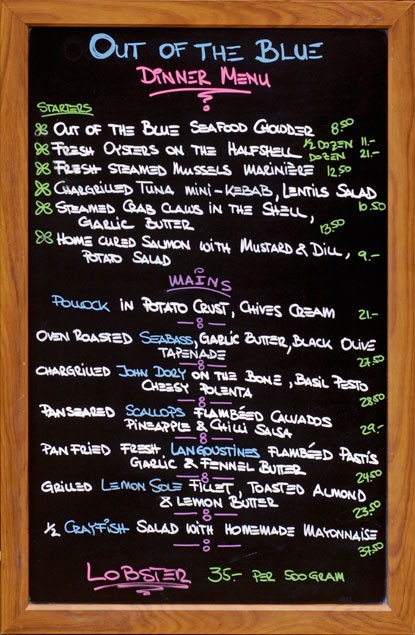 OUT OF THE BLUE
DINNER MENU
STARTERS
OUT OF THE BLUE SEAFOOD CHOWDER 8.50
FRESH OYSTERS ON THE HALFSHELL ½ DOZEN 11.-
DOZEN 21.-
FRESH STEAMED MUSSELS MARINIÈRE 12.50
CHARGRILLED TUNA MINI-KEBAB, LENTILS SALAD
10.50
STEAMED CRAB CLAWS IN THE SHELL,
GARLIC BUTTER 13.50
HOME CURED SALMON WITH MUSTARD & DILL,
POTATO SALAD 9.-
MAINS
POLLOCK IN POTATO CRUST, CHIVES CREAM 21.-
OVEN ROASTED SEABASS, GARLIC BUTTER, BLACK OLIVE
TAPENADE 27.50
CHARGRILLED JOHN DORY ON THE BONE, BASIL PESTO
CHEESY POLENTA 28.50
PANSEARED SCALLOPS FLAMBÉED CALVADOS
PINEAPPLE & CHILLI SALSA 29.-
PAN FRIED FRESH LANGOUSTINES FLAMBÉED PASTIS
GARLIC & FENNEL BUTTER 24.50
GRILLED LEMON SOLE FILLET, TOASTED ALMOND
& LEMON BUTTER 23.50
½ CRAYFISH SALAD WITH HOMEMADE MAYONNAISE
37.50
LOBSTER 35.- PER 500 GRAM